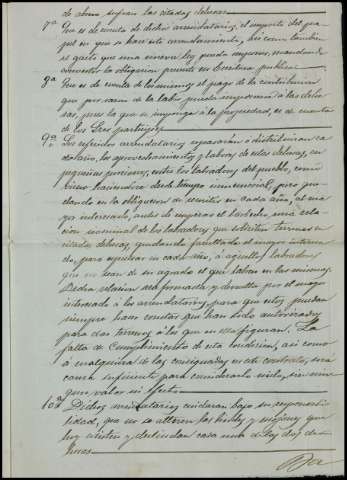 de abono sufran las citadas dehesas.
7ª Que es de cuenta de dichos arrendatarios, el importe del pa-
pel en que se haze este arrendamiento, así como tambien
el gasto que una vez en ley pueda suponer, mandar
convertir la obligacion presente en Escritura publica.
8ª Que es de cuenta de los mismos el pago de la contribucion
que por razon de la labor pueda imponerse á las dehe-
sas, pues la que se imponga á la propiedad, es de cuenta
de los Sres partícipes.
9ª Los referidos arrendatarios repasarán ó distribuiran ca-
da año, los aprovechamientos y labores de estas dehesas, en
pequeñas porciones, entre los labradores del pueblo, como
viene haciendose desde tiempo inmemorial; pero que-
dando en la obligacion de remitir en cada año, al ma-
yor interesado, antes de empezar el barbecho, una rela-
cion nominal de los labradores que soliciten terrenos en
citadas dehesas, quedando facultado el mayor interesa-
do, para espulsar en cada año, á aquellos labradores
que no sean de su agrado el que labren en las mismas.
Dicha relacion será firmada y devuelta por el mayor
interesado á los arrendatarios, para que estos puedan
siempre hacer constar que han sido autorizados
para dar terrenos á los que en ella figuran. La
falta de cumplimiento de esta condicion, así como
á cualquiera de las consignadas en este contrato, será
causa suficiente para considerarlo nulo, sin nin-
gun valor ni efecto.
10ª Dichos arrendatarios cuidaran bajo su responsabi-
lidad, que no se alteren los lindes y mojones que
hoy existen y deslindan cada una de las dos de-
hesas.